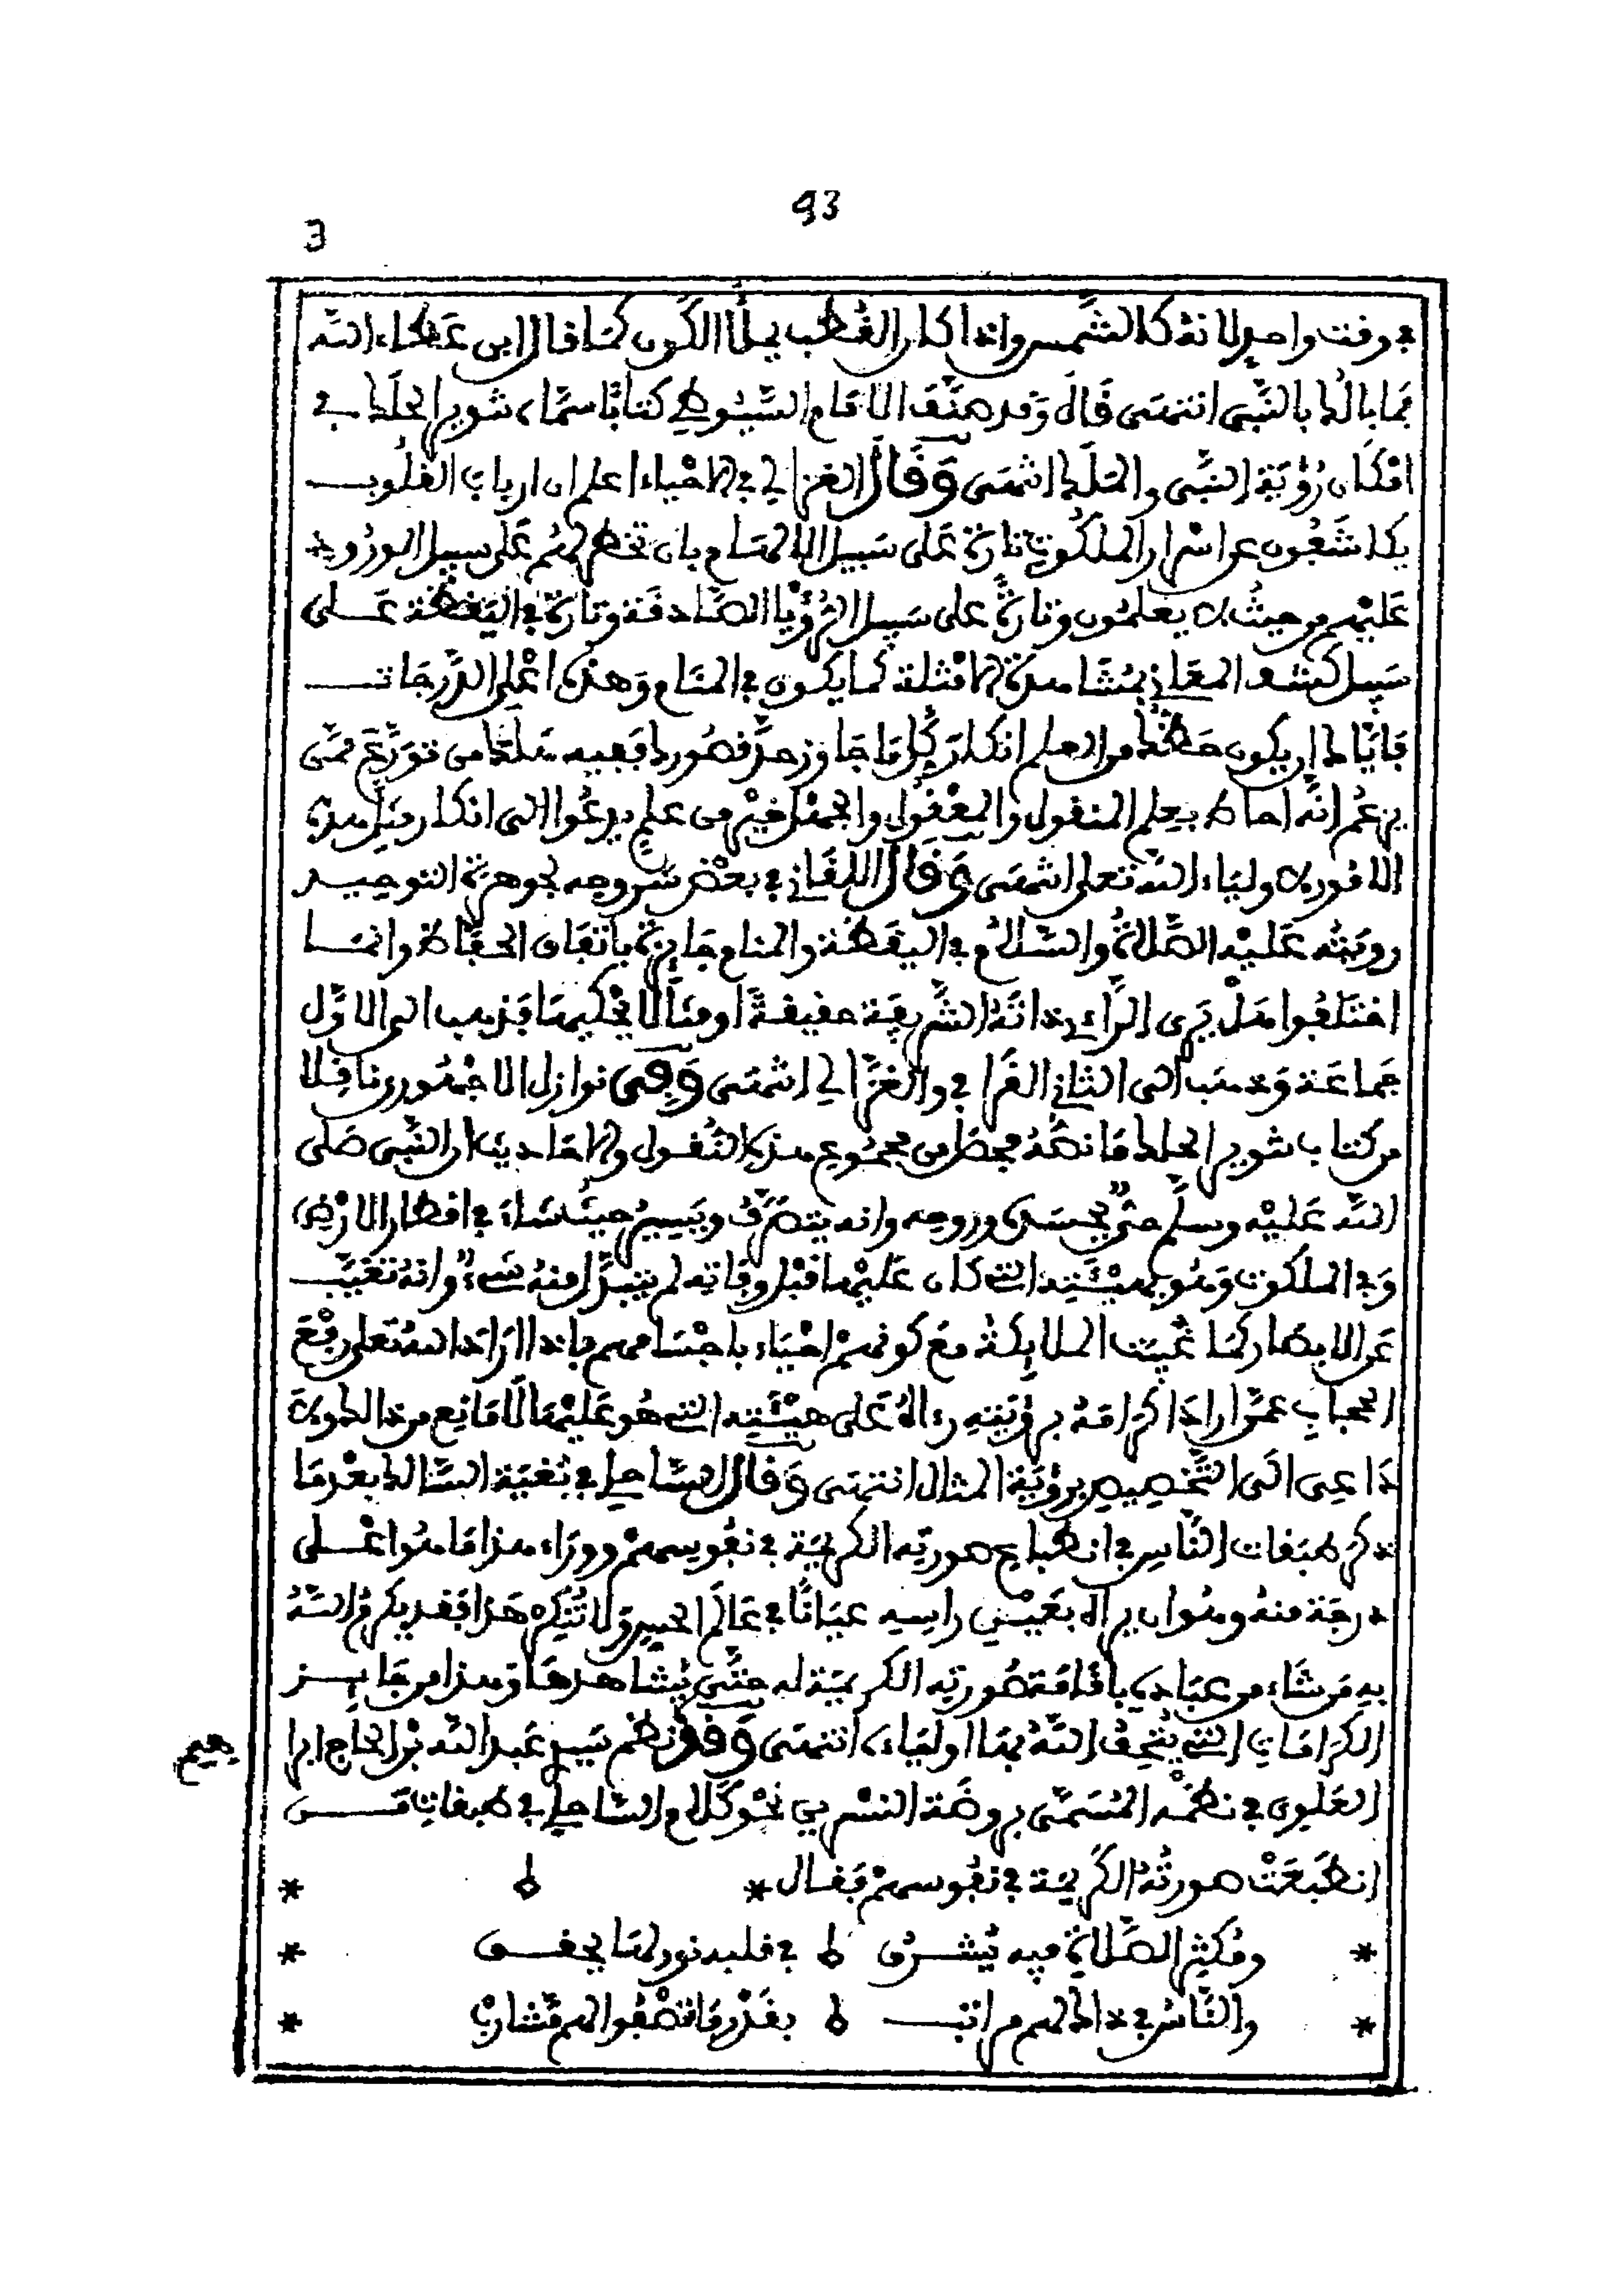 93
3
في وقت واحد لانه كالشمس واذا كان القطب يملأ الكون كما قال ابن عطاء الله
فما بالك بالنبي انتهى قال وقد صنف الامام السيوطي كتابا سماه تنوير الحلك في
امكان رؤية النبي والملك انتهى وقال الغزالي في الاحياء اعلم ان ارباب القلوب
يكاشفون عن اسرار الملكوت تارة على سبيل الالهام بان تخطر لهم على سبيل الورود
عليهم من حيث لا يعلمون وتارة على سبيل الرؤيا الصادقة وتارة في اليقظة على
سبيل كشف المعاني بمشاهدة الامثلة كما يكون في المنام وهذه اعلى الدرجات
فاياك ان يكون حظك من العلم انكار كل ما جاوز حد قصورك ففيه هلك من تورع ممن
يزعم انه احاط بعلم المنقول والمعقول والجهل خير من علم يدعوا الى انكار مثل هذه
الامور لاولياء الله تعلى انتهى وقال اللقاني في بعض شروحه لجوهرة التوحيد
رويته عليه الصلاة والسلام في اليقظة والمنام جايزة باتفاق الحفاظ وانما
اختلفوا هل يرى الراءي ذاته الشريفة حقيقة او مثالا يحكيها فذهب الى الاول
جماعة وذهب الى الثاني القرافي والغزالي انتهى وفي نوازل الاجهوري ناقلا
من كتاب تنوير الحلك ما نصه فحصل من مجموع هذه النقول والاحاديث ان النبي صلى
الله عليه وسلم حي بجسده وروحه وانه يتصرف ويسير حيث شاء في اقطار الارض
وفي الملكوت وهو بهيئته التي كان عليها قبل وفاته لم يتبدل منه شيء وانه تغيب
عن الابصار كما غيبت الملايكة مع كونهم احياء باجسامهم فاذا اراد الله تعلى رفع
الحجاب عمن اراد اكرامه برؤيته رءاه على هيئته التي هو عليها لا مانع من ذالك ولا
داعي الى التخصيص برؤية المثال انتهى وقال الساحلي في بغية السالك بعد ما
ذكر طبقات الناس في انطباع صورته الكريمة في نفوسهم ووراء هذا ما هوا على
درجة منه وهوا ان يراه بعيني راسه عيانا في عالم الحس ولا تنكر هذا فقد يكرم الله
به من شاء من عباده باقامة صورته الكريمة له حتى يشاهدها وهذا من جايز
الكرامات التي يتحف الله بها اولياءه انتهى وقد نظم سيد عبد الله بن الحاج ابرا
هيم
العلوي في نظمه المسمى بروضة النسرين نحو كلام الساحلي في طبقات من
انطبعت صورته الكريمة في نفوسهم فقال *
ومكثر الصلاة فيه يشرق في قلبه نور لها يحقق
والناس في ذاك لهم مراتب بقدر ما تصفوا لهم مشارب